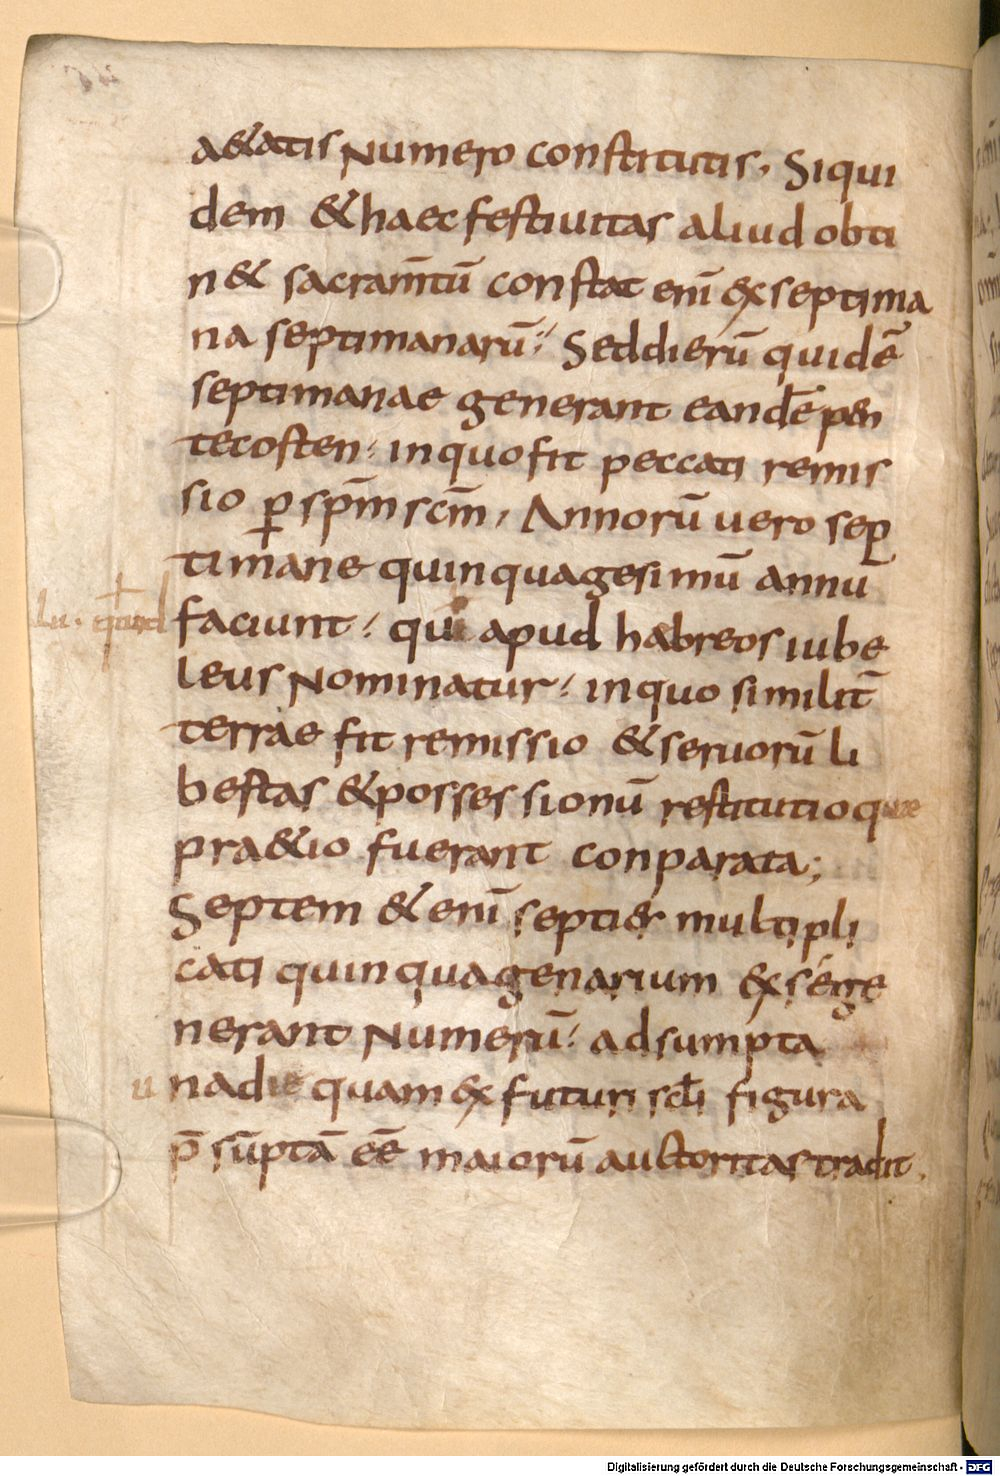 a&atis Numero constitutis, Siqui
dem & haec festiuitas aliud obti
n& sacram̄tū constat enī ex septima
na septimanarū; Sed dierū quidē
septimanae generant eandē pen
tecosten; in quo fit peccati remis
sio p̱ sp̄m sc̄m, Annorū uero sep
timane quinquagesimū annu
faciunt; qui apud habreos iube
leus Nominatur; in quo similit̄
terrae fit remissio & seruorū li
bestas & possessionū restitutio quae
pra&io fuerant conparata;
Septem & enī septies multipli
cati quinquagenarium ex se ge
nerant Numerū; adsumpta
u nadie quam ex futuri sc̄li figura
p̄sūptā eē maiorū auctoritas tradit.
Digitalisierung gefördert durch die Deutsche Forschungsgemeinschaft - DFG